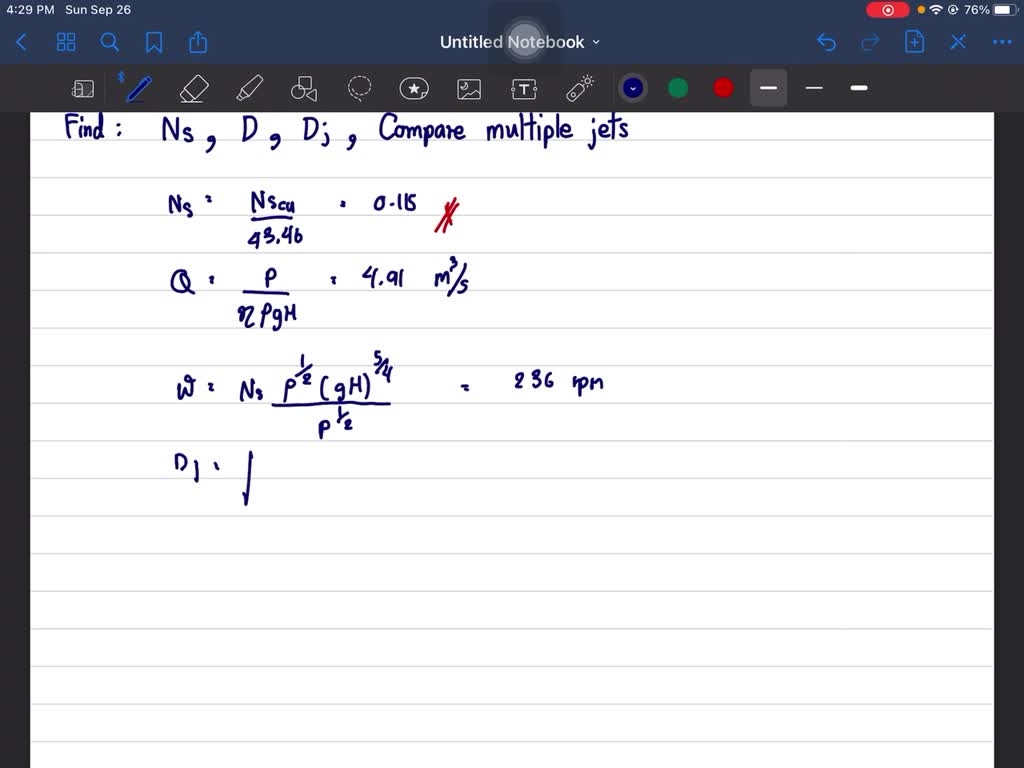 4:29 PM Sun Sep 26
76%
Untitled Notebook
Find : Ns, D, Dj, Compare multiple jets
Ns = Nscu / 43.46 = 0.115
Q = P / ηρgH = 4.91 m³/s
ω = Ns ρ^1/2 (gH)^5/4 / P^1/2 = 236 rpm
Dj =